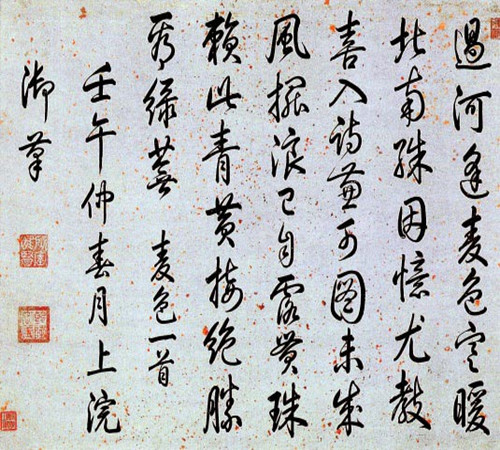 過河逢麦色寒暖
北南殊因憶尤教
喜入詩兼可圖未成
風擺浪已自露貫珠
賴此青黄接絶勝
秀緑蕪 麦色一首
壬午仲春月上浣
御筆